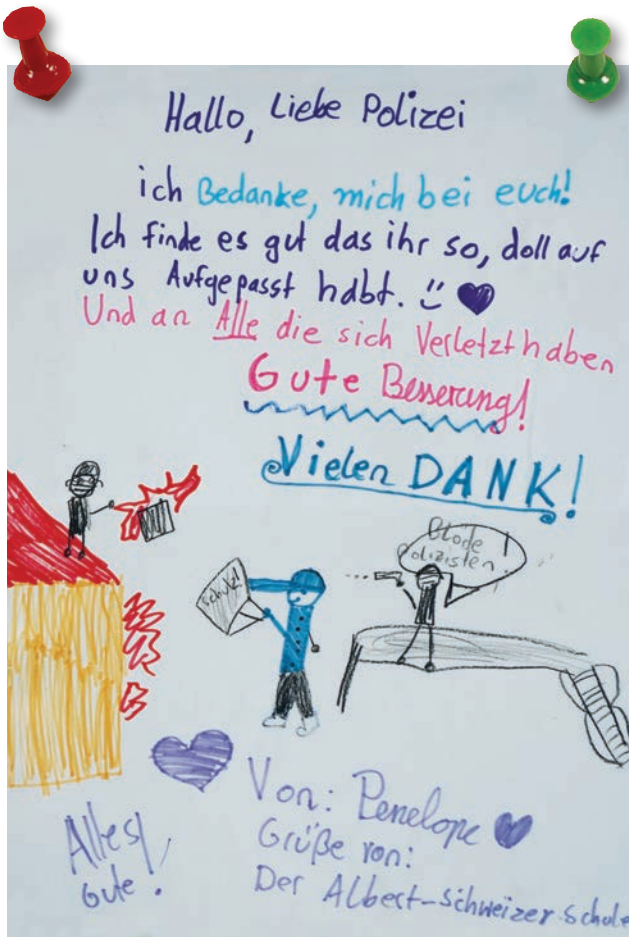 Hallo, Liebe Polizei
ich Bedanke, mich bei euch!
Ich finde es gut das ihr so, doll auf
uns Aufgepasst habt.
Und an Alle die sich Verletzt haben
Gute Besserung!
Vielen DANK!
Blöde
Polizisten!
Schutz!
Von: Penelope
Grüße von:
Der Albert-Schweizer Schule
Alles
Gute!